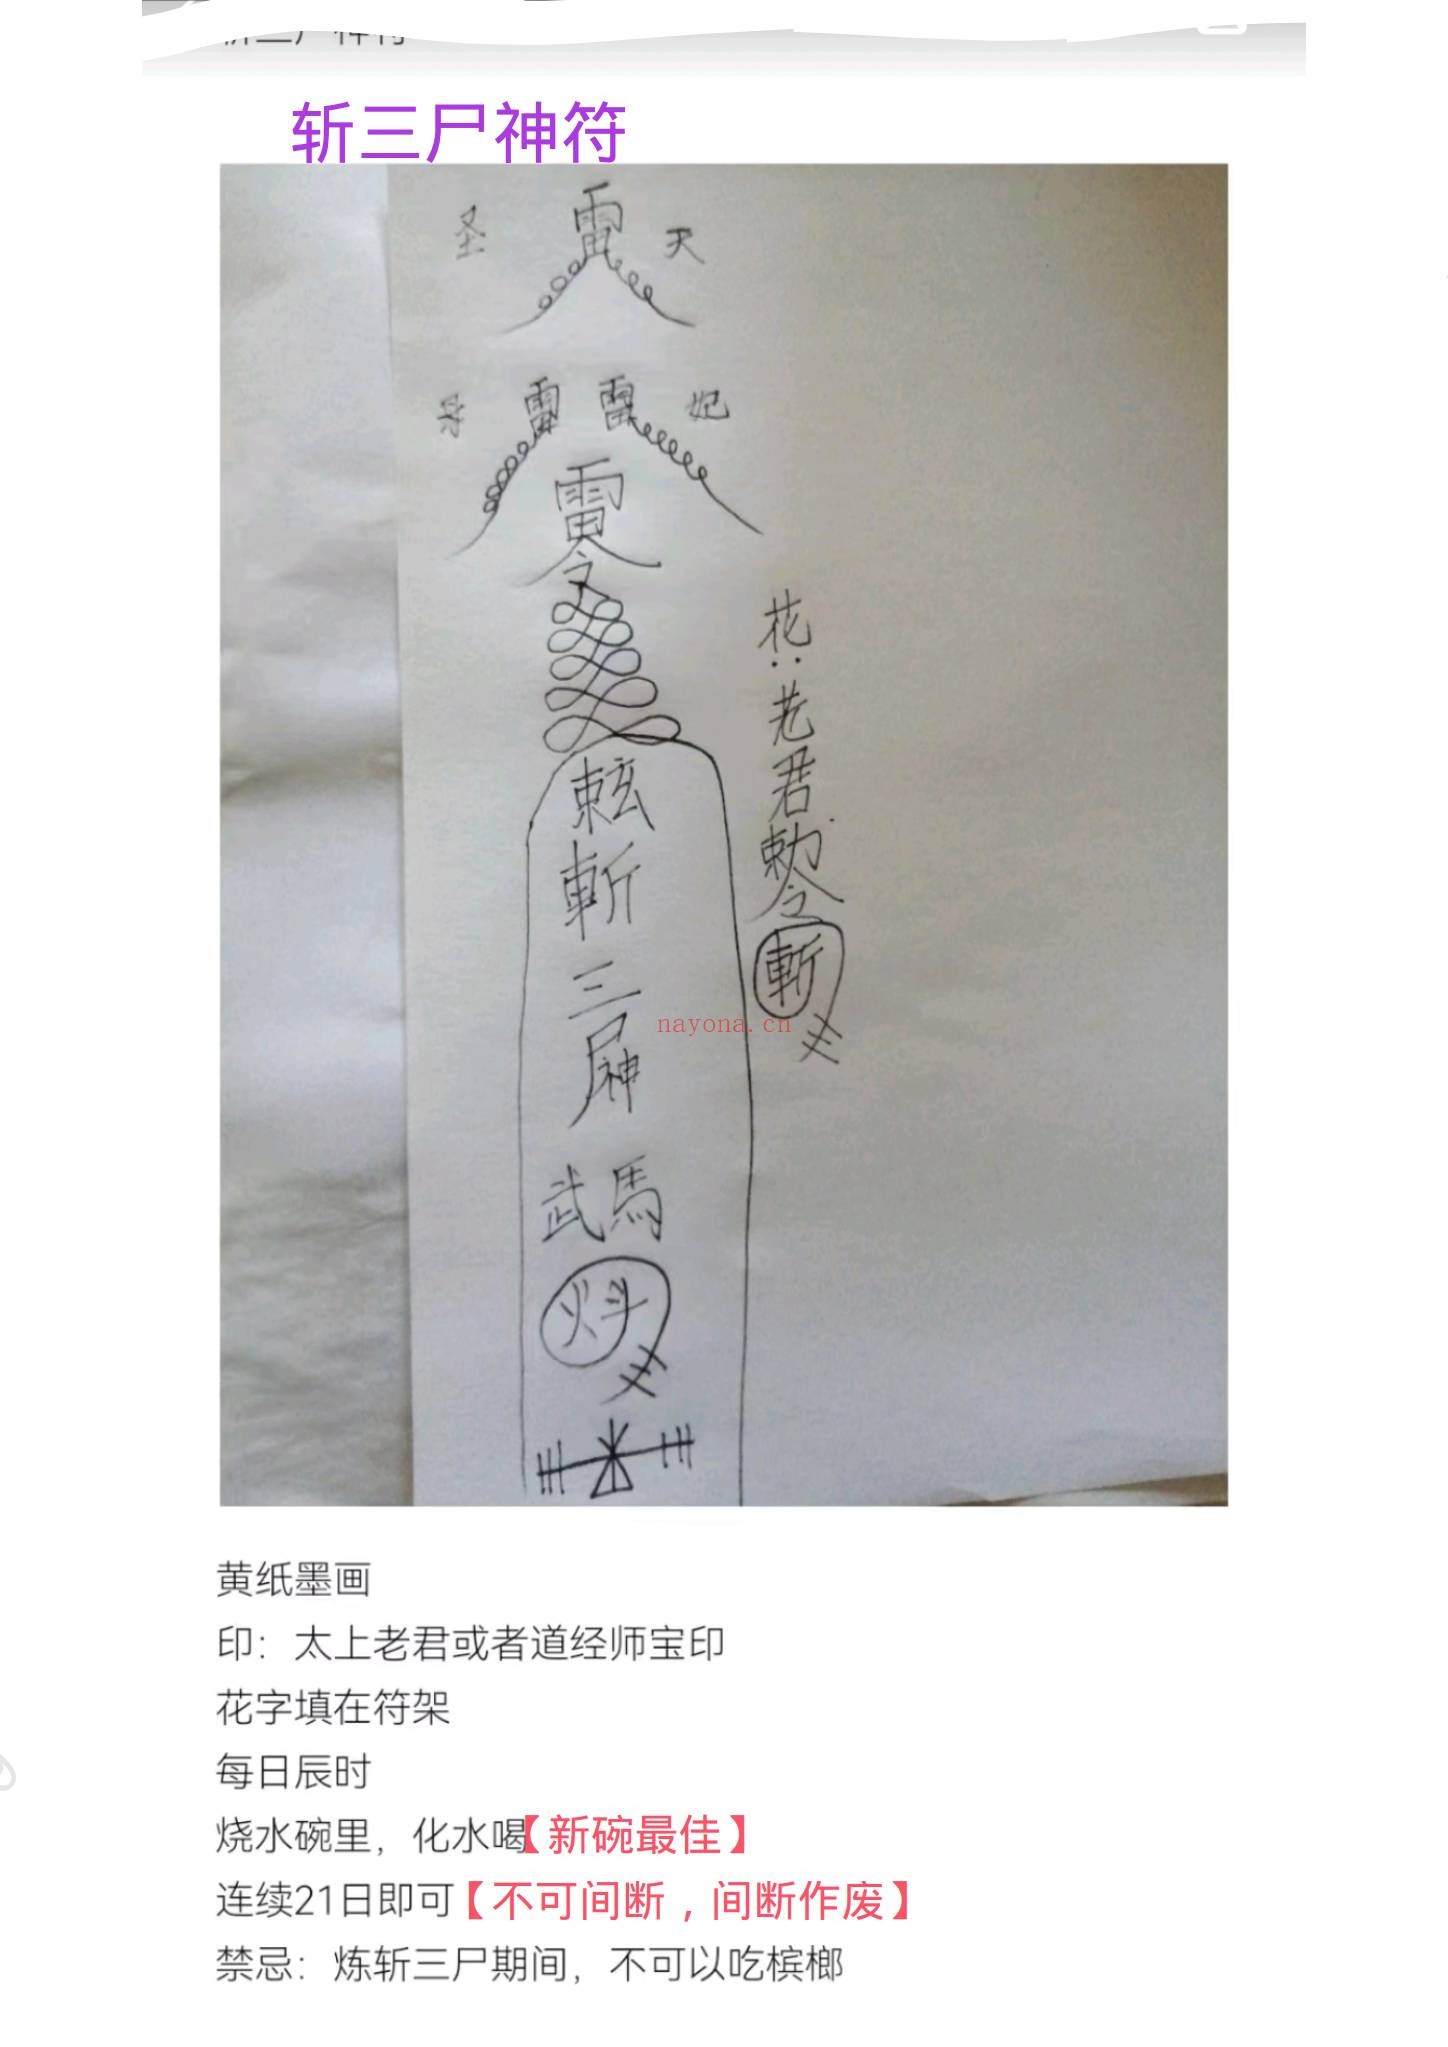 斩三尸神符
圣 雷 天
雷 雷 妃
雷
令
斬
三
尸神
武馬
火斗
花:
老
君
勅
令
斬
nayona.cn
黄纸墨画
印：太上老君或者道经师宝印
花字填在符架
每日辰时
烧水碗里，化水喝【新碗最佳】
连续21日即可【不可间断，间断作废】
禁忌：炼斩三尸期间，不可以吃槟榔